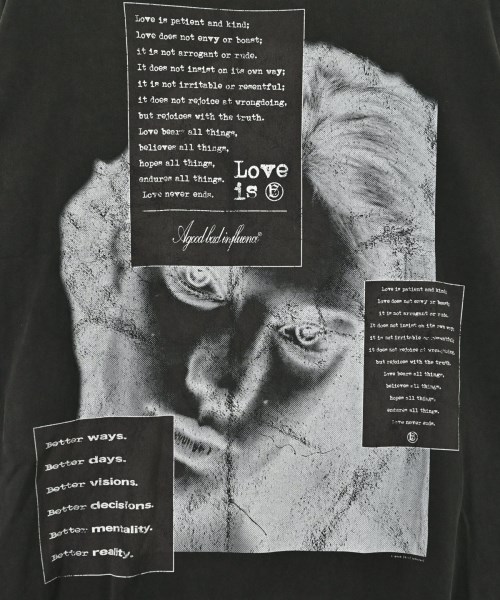 Love is patient and kind;
love does not envy or boast;
it is not arrogant or rude.
It does not insist on its own way;
it is not irritable or resentful;
it does not rejoice at wrongdoing,
but rejoices with the truth.
Love bears all things,
believes all things,
hopes all things,
endures all things.
Love never ends.
Love
is
A good bad influence®
Love is patient and kind;
Love does not envy or boast;
it is not arrogant or rude.
It does not insist on its own way;
it is not irritable or resentful;
it does not rejoice at wrongdoing,
but rejoices with the truth.
Love bears all things,
believes all things,
hopes all things,
endures all things.
Love never ends.
Better ways.
Better days.
Better visions.
Better decisions.
Better mentality.
Better reality.